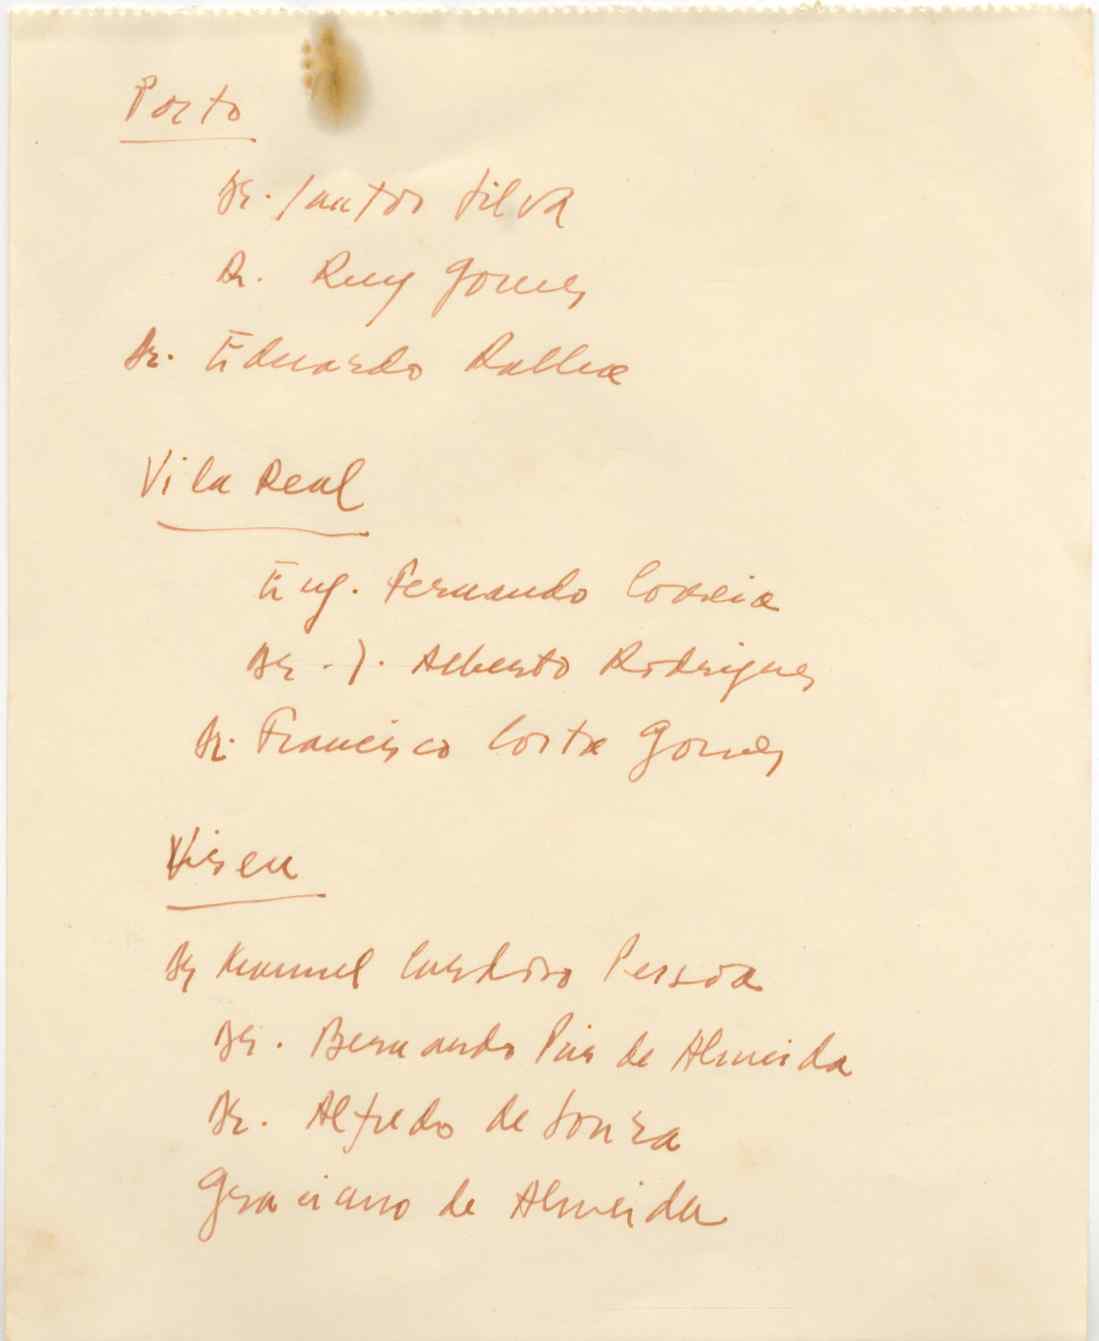 Porto
Dr. Santos Silva
Dr. Ruy Gomes
Dr. Eduardo Ralha
Vila Real
Eng. Fernando Correia
Dr. J. Alberto Rodrigues
Dr. Francisco Costa Gomes
Viseu
Dr Manuel Cardoso Pessoa
Dr. Bernardo Pais de Almeida
Dr. Alfredo de Sousa
Graciano de Almeida